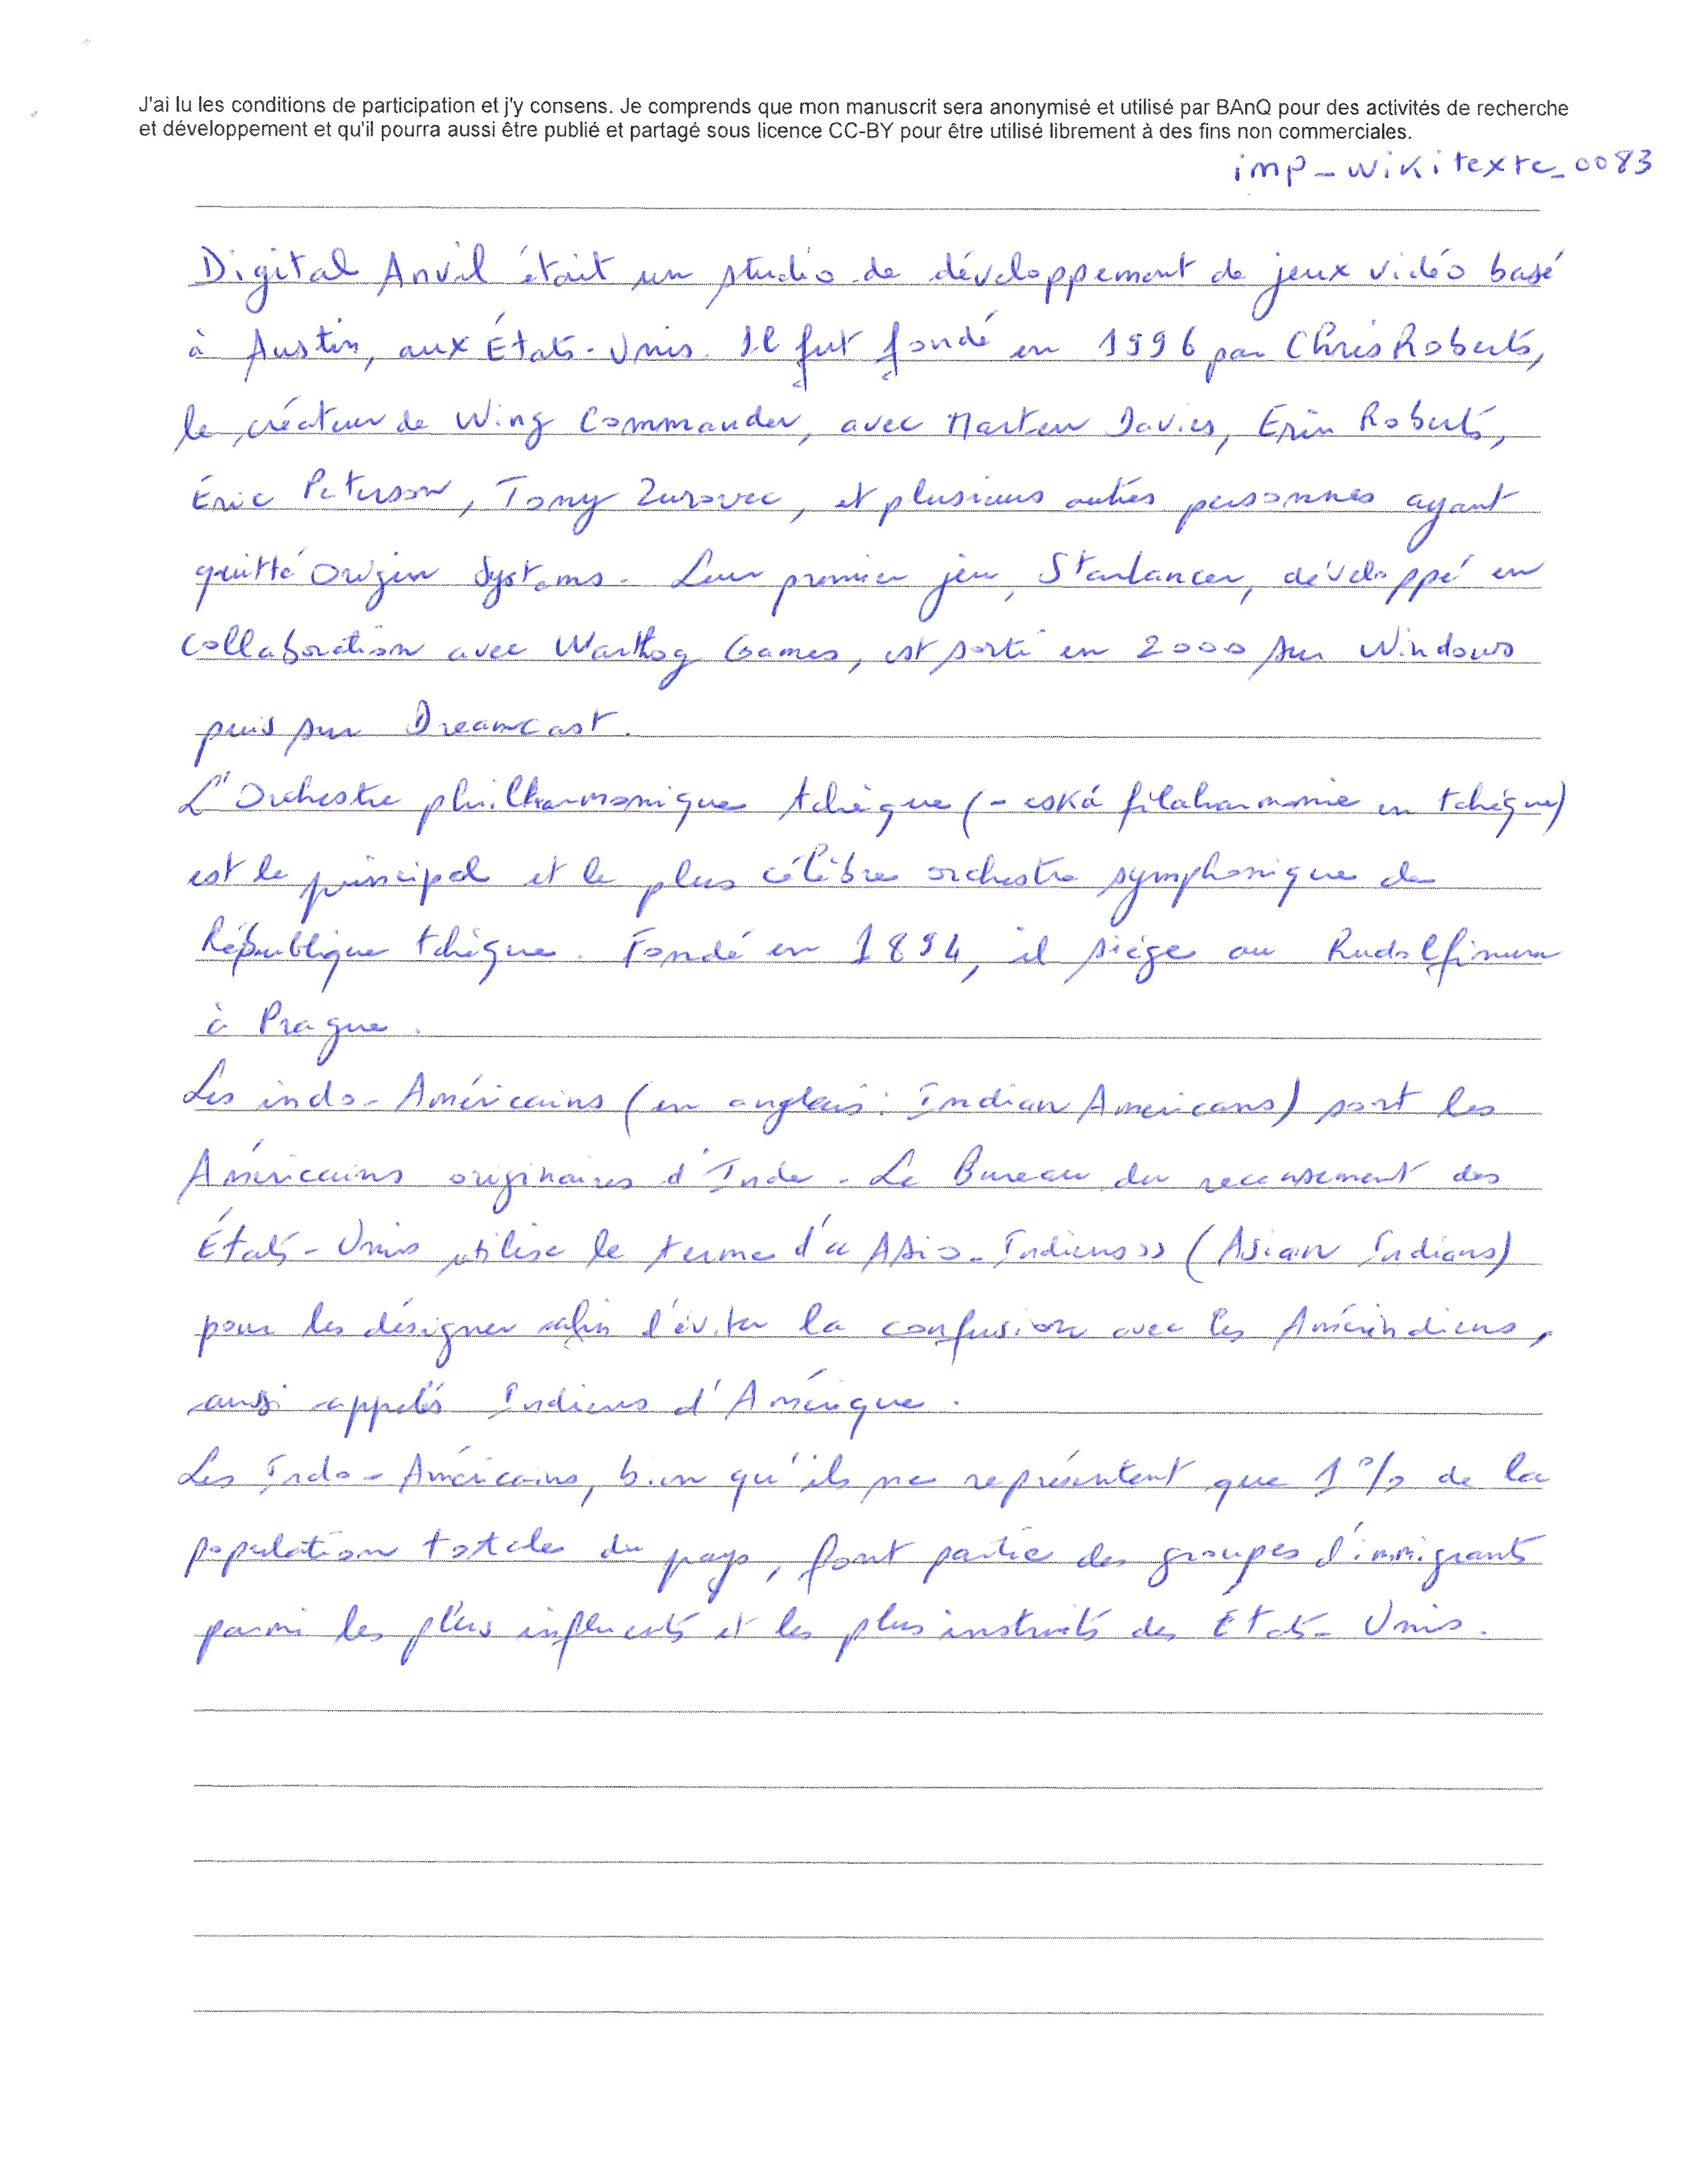 J'ai lu les conditions de participation et j'y consens. Je comprends que mon manuscrit sera anonymisé et utilisé par BAnQ pour des activités de recherche
et développement et qu'il pourra aussi être publié et partagé sous licence CC-BY pour être utilisé librement à des fins non commerciales.
imp_wikitexte_0083
Digital Anvil était un studio de développement de jeux vidéo basé
à Austin, aux États-Unis. Il fut fondé en 1996 par Chris Roberts,
le créateur de Wing Commander, avec Marten Davies, Erin Roberts,
Eric Peterson, Tony Zurovec, et plusieurs autres personnes ayant
quitté Origin Systems. Leur premier jeu, Starlancer, développé en
collaboration avec Warthog Games, est sorti en 2000 sur Windows
puis sur Dreamcast.
L'Orchestre philharmonique tchèque (-eská filaharmonie en tchèque)
est le principal et le plus célèbre orchestre symphonique de
République tchèque. Fondé en 1894, il siège au Rudolfinum
à Prague.
Les indo-Américains (en anglais : Indian Americans) sont les
Américains originaires d'Inde. Le Bureau du recensement des
États-Unis utilise le terme d'« Asio-Indiens » (Asian Indians)
pour les désigner afin d'éviter la confusion avec les Amérindiens,
aussi appelés Indiens d'Amérique.
Les Indo-Américains, bien qu'ils ne représentent que 1% de la
population totale du pays, font partie des groupes d'immigrants
parmi les plus influents et les plus instruits des États-Unis.